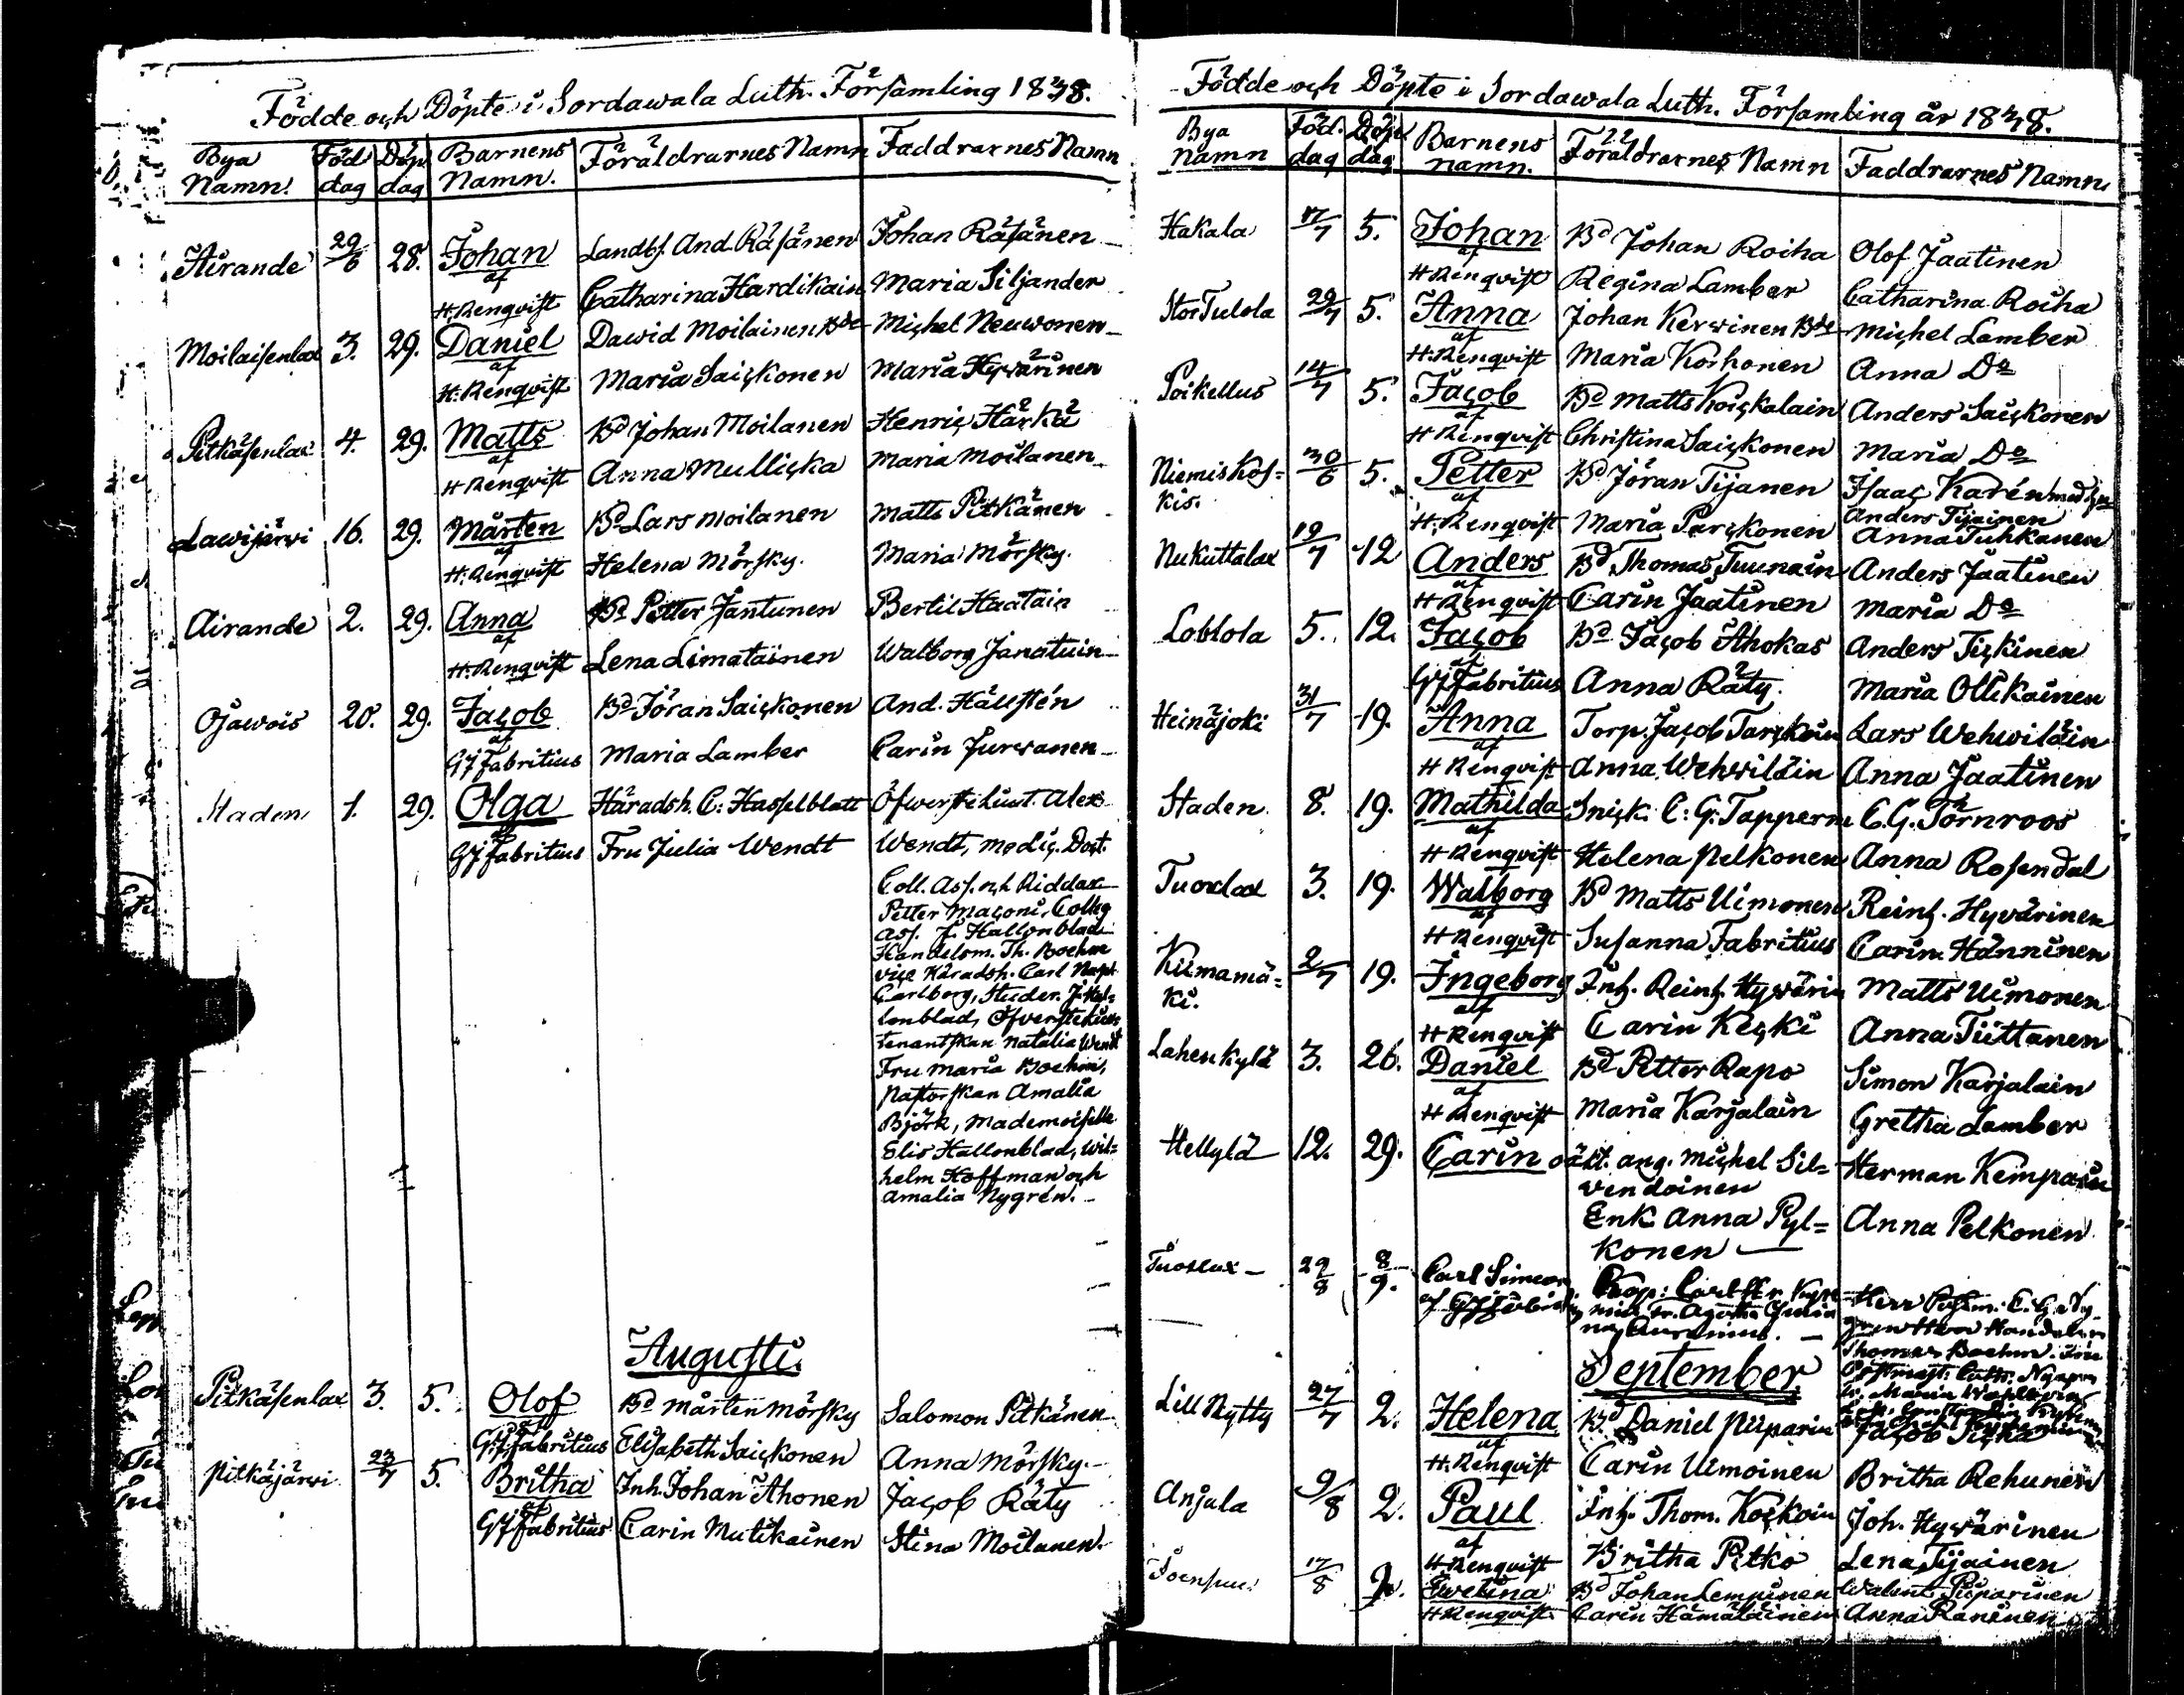 Födde och Döpte i Sordawala Luth. Församling 1838.
Bya Namn. Föd dag Döp dag Barnens Namn. Föräldrarnes Namn Faddrarnes Namn
Airande 29/6 28. Johan Landtf. And. Räsänen Johan Räsänen
af
H. Renqvist Catharina Hardikain Maria Siljander
Moilaisenlax 3. 29. Daniel Dawid Moilainen Bde Michel Neuwonen
af
H. Renqvist Maria Saickonen Maria Hyvärinen
Pitkäsenlax 4. 29. Matts Bd Johan Moilanen Henric Härkä
af
H Renqvist Anna Mullicka Maria Moilanen
Lawijärvi 16. 29. Mårten Bd Lars Moilanen Matts Pitkänen
af
H. Renqvist Helena Mörsky. Maria Mörsky.
Airande 2. 29. Anna Bd Petter Jantunen Bertil Haatain
af
H. Renqvist Lena Limatainen Walborg Janatuin
Ojawois 20. 29. Jacob Bd Jöran Saickonen And. Hällstén
af
GJ Fabritius Maria Lamber Carin Jurwanen
Staden 1. 29. Olga Häradsh. C. Hasselblatt Öfwerstelieut. Alex
af
GJ Fabritius Fru Julia Wendt Wendt, Medic. Doct.
Coll. Ass. och Riddare
Petter Maconi, Colleg
Ass. F. Hallonblad
Handelsm. Th. Boehm
vice Häradsh. Carl
Carlborg, Studer. J. Hal=
lonblad, Öfverstelieu
tenantskan Natalia Wendt
Fru Maria Boehm,
Pastorskan Amalia
Björk, Mademoiselle
Elis Hallonblad, Wil=
helm Hoffman och
Amalia Nygrén.
Augusti.
Pitkäsenlax 3. 5. Olof Bd Mårten Mörsky Salomon Pitkänen
af
GJ Fabritius Elisabeth Saickonen Anna Mörsky.
Pitkäjärwi 23/7 5. Britha Inh. Johan Ahonen Jacob Räty
af
GJ Fabritius Carin Mutikainen Stina Moilanen.
Födde och Döpte i Sordawala Luth. Församling år 1838.
Bya namn Föd. dag Döp dag Barnens namn. Föräldrarnes Namn Faddrarnes Namn
Hakala 17/7 5. Johan Bd Johan Roiha Olof Jaatinen
af
H Renqvist Regina Lamber Catharina Roiha
Stor Tulola 29/7 5. Anna Johan Kerwinen Bde Michel Lamber
af
H. Renqvist Maria Korhonen Anna Do
Poikellus 14/7 5. Jacob Bd Matts Koickalain Anders Saickonen
af
H Renqvist Christina Saickonen Maria Do
Niemiskos= 30/6 5. Petter Bd Jöran Tijanen Isaac Karén
kis. af Anders Tijainen
H. Renqvist Maria Parckonen Anna Tuhkanen
Nukuttalax 19/7 12 Anders Bd Thomas Tuunain Anders Jaatinen
af
H Renqvist Carin Jaatinen Maria Do
Loblola 5. 12. Jacob Bd Jacob Ahokas Anders Tickinen
af
GJ Fabritius Anna Räty. Maria Ollikainen
Heinäjoki 31/7 19. Anna Torp. Jacob Tarckiain Lars Wehwiläin
af
H Renqvist Anna Wehwiläin Anna Jaatinen
Staden 8. 19. Mathilda Snick. C. G. Tapperm C. G. Törnroos
af
H Renqvist Helena Pelkonen Anna Rosendal
Tuoxlax 3. 19. Walborg Bd Matts Uimonen Reinh. Hyvärinen
af
H Renqvist Susanna Fabritius Carin Hänninen
Kiimamä= 2/7 19. Ingeborg Inh. Reinh. Hyvärin Matts Uimonen
ki. af
H Renqvist Carin Kecki Anna Tiittanen
Lahenkylä 3. 26. Daniel Bd Petter Rapo Simon Karjalain
af
H Renqvist Maria Karjalain Gretha Lamber
Hellylä 12. 29. Carin oäkt. ang. Michel Sil= Herman Kempain
vendoinen
Enk. Anna Pyl= Anna Pelkonen
konen
Tuoslax 29/8 8/9. Carl Simeon
Thomas Boehm
September
Lill Rytty 27/7 2. Helena Bd Daniel Piiparin Jacob Sicka
af
H. Renqvist Carin Uimoinen Britha Rehunen
Anjala 9/8 2. Paul Inh. Thom. Kockoin Joh. Hyvärinen
af
H Renqvist Britha Pitko Lena Tijainen
17/8 2. Ewelina Bd Johan Lempinen Walent. Piiparinen
H Renqvist Carin Hämäläinen Anna Raninen